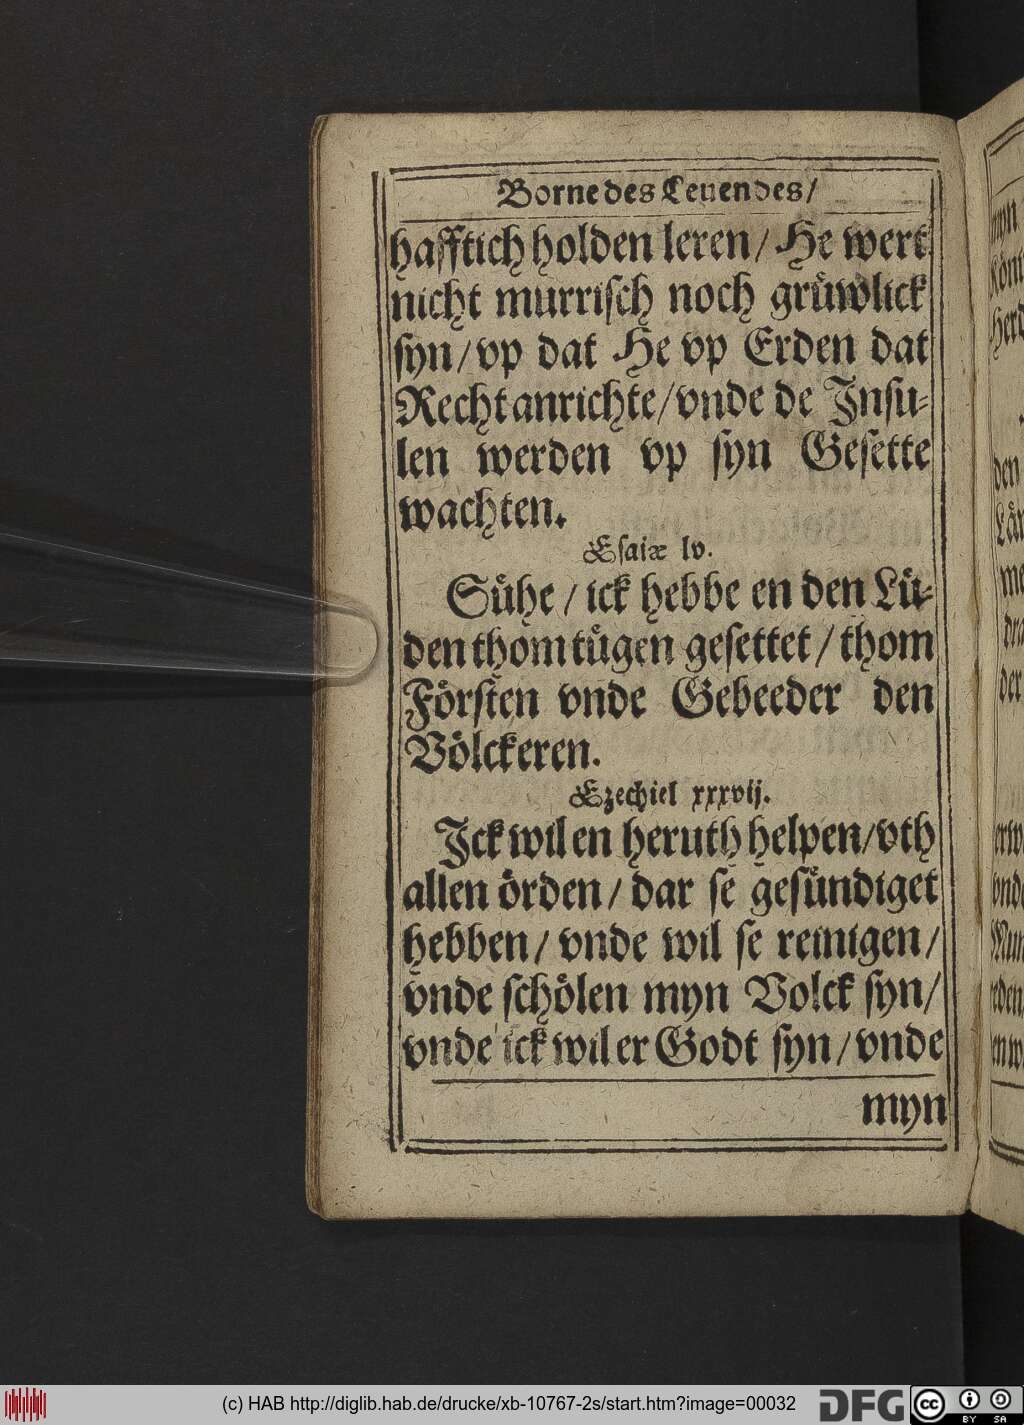 Borne des Leuendes/
hafftich holden leren/ He wert
nicht murrisch noch gruͤwlick
syn/ vp dat He vp Erden dat
Recht anrichte/ vnde de Insu-
len werden vp syn Gesette
wachten.
Esaiæ lv.
Suͤhe/ ick hebbe en den Luͤ-
den thom tuͤgen gesettet/ thom
Foͤrsten vnde Gebeeder den
Voͤlckeren.
Ezechiel xxxvij.
Ick wil en heruth helpen/ vth
allen oͤrden/ dar se gesuͤndiget
hebben/ vnde wil se reinigen/
vnde schoͤlen myn Volck syn/
vnde ick wil er Godt syn/ vnde
myn
(c) HAB http://diglib.hab.de/drucke/xb-10767-2s/start.htm?image=00032
DFG
cc
BY SA